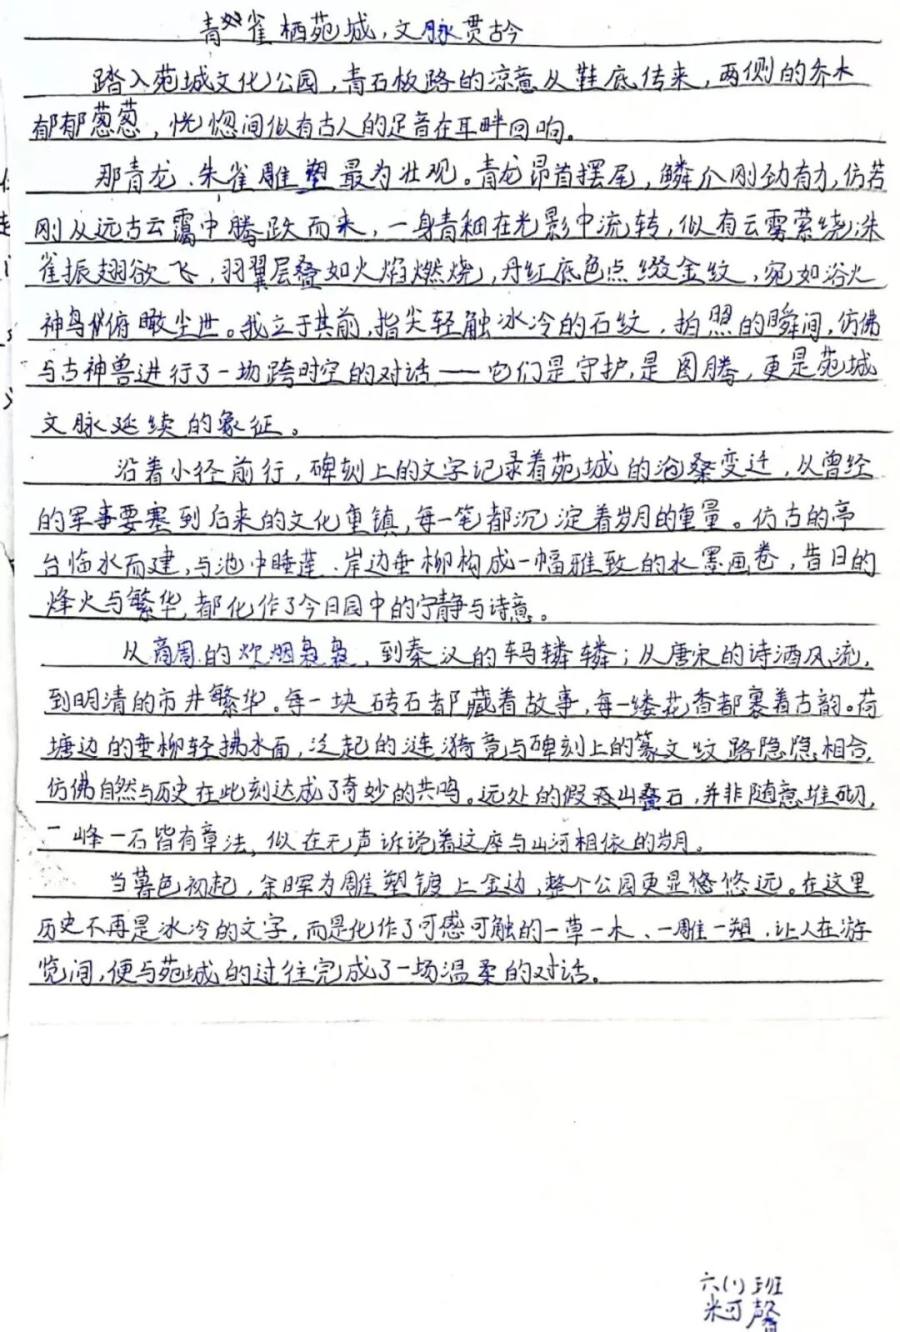 青雀栖苑城，文脉贯古今
踏入苑城文化公园，青石板路的凉意从鞋底传来，两侧的乔木
郁郁葱葱，恍惚间似有古人的足音在耳畔回响。
那青龙、朱雀雕塑最为壮观。青龙昂首摆尾，鳞介刚劲有力，仿若
刚从远古云霭中腾跃而来，一身青釉在光影中流转，似有云雾萦绕；朱
雀振翅欲飞，羽翼层叠如火焰燃烧，丹红底色点缀金纹，宛如浴火
神鸟俯瞰尘世。我立于其前，指尖轻触冰冷的石纹，拍照的瞬间，仿佛
与古神兽进行了一场跨时空的对话——它们是守护，是图腾，更是苑城
文脉延续的象征。
沿着小径前行，碑刻上的文字记录着苑城的沧桑变迁，从曾经
的军事要塞到后来的文化重镇，每一笔都沉淀着岁月的重量。仿古的亭
台临水而建，与池中睡莲、岸边垂柳构成一幅雅致的水墨画卷，昔日的
烽火与繁华，都化作了今日园中的宁静与诗意。
从商周的炊烟袅袅，到秦汉的车马辚辚；从唐宋的诗酒风流，
到明清的市井繁华。每一块砖石都藏着故事，每一缕花香都裹着古韵。荷
塘边的垂柳轻拂水面，泛起的涟漪竟与碑刻上的篆文纹路隐隐相合，
仿佛自然与历史在此刻达成了奇妙的共鸣。远处的假山叠石，并非随意堆砌，
一峰一石皆有章法，似在无声诉说着这座与山河相依的岁月。
当暮色初起，余晖为雕塑镀上金边，整个公园更显悠悠远。在这里
历史不再是冰冷的文字，而是化作了可感可触的一草一木、一雕一塑，让人在游
览间，便与苑城的过往完成了一场温柔的对话。
六(1)班
米可馨